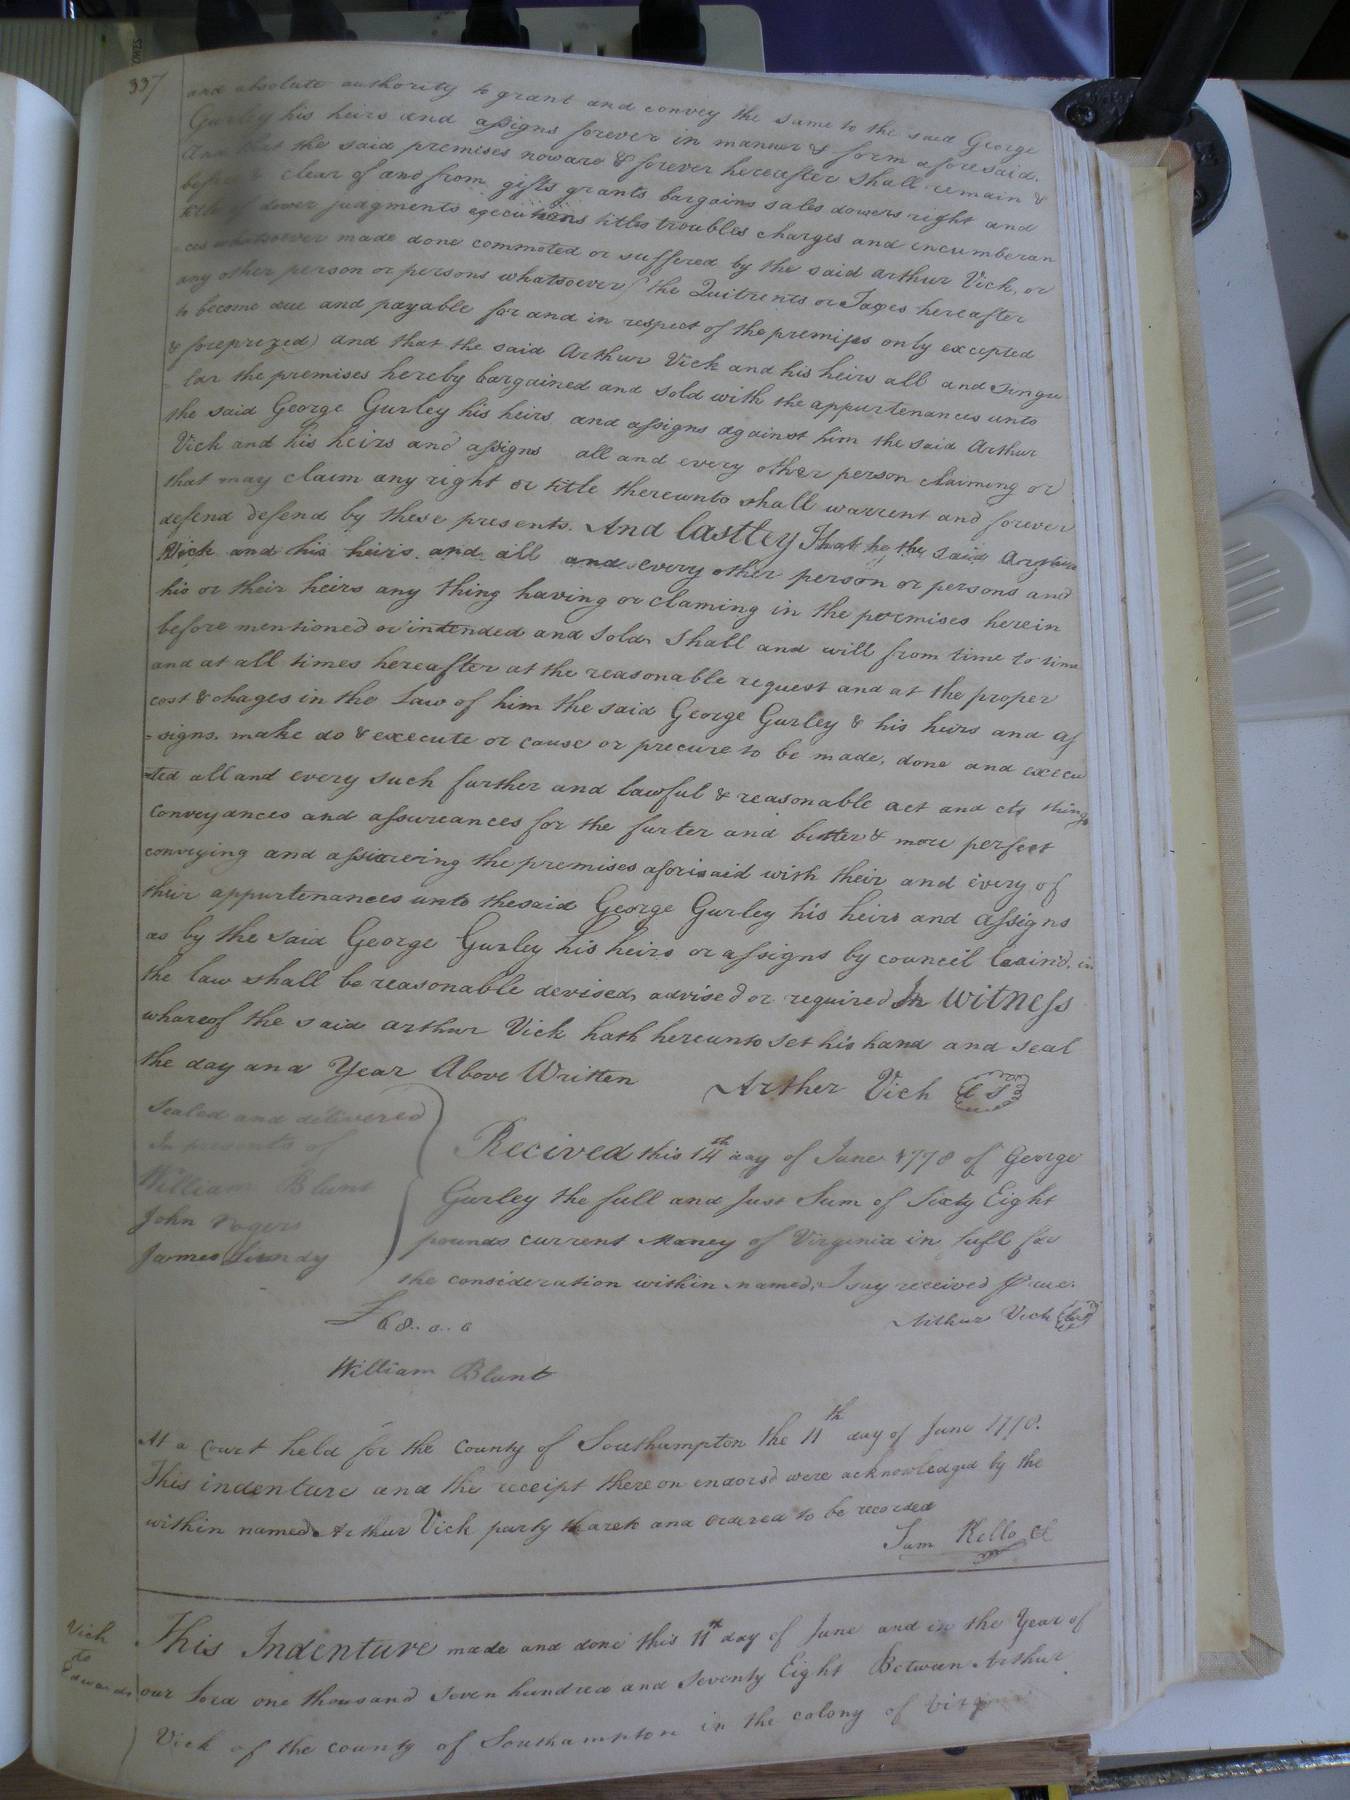 337
and absolute authority to grant and convey the same to the said George
Gurley his heirs and assigns forever in manner & form aforesaid.
And that the said premises now are & forever hereafter shall remain &
clear of and from gifts grants bargains sales dowers right and
title of dower judgments executions titles troubles charges and encumberan
-ces whatsoever made done commoted or suffered by the said Arthur Vick, or
any other person or persons whatsoever (the Quitrents or Taxes hereafter
to become due and payable for and in respect of the premises only excepted
& foreprized) and that the said Arthur Vick and his heirs all and singu
-lar the premises hereby bargained and sold with the appurtenances unto
the said George Gurley his heirs and assigns against him the said Arthur
Vick and his heirs and assigns all and every other person claiming or
that may claim any right or title thereunto shall warrent and forever
defend defend by these presents. And lastley That he the said Arthur
Vick and his heirs and all and every other person or persons and
his or their heirs any thing having or claming in the permises herein
before mentioned or intended and sold shall and will from time to time
and at all times hereafter at the reasonable request and at the proper
cost & chages in the Law of him the said George Gurley & his heirs and as
-signs. make do & execute or cause or precure to be made, done and execu
-ted all and every such further and lawful & reasonable act and cts things
Conveyances and assureances for the furter and better & more perfect
conveying and assureing the premises aforisaid with their and every of
their appurtenances unto the said George Gurley his heirs and assigns
as by the said George Gurley his heirs or assigns by council in
the law shall be reasonable devised, advised or required In Witness
whareof the said Arthur Vick hath hereunto set his hand and seal
the day and Year Above Written Arther Vick LS
Sealed and delivered
In presents of
William Blunt
John Rogers
James Lundy
Recived this 14th day of June 1778 of George
Gurley the full and Just Sum of Sixty Eight
pounds current Money of Virginia in full for
the consideration within named, I say received pr me.
£68..0..0 Arthur Vick LS
William Blunt
At a Court held for the County of Southampton the 11th day of June 1778.
This indenture and the receipt there on endorsd were acknowledged by the
within named Arthur Vick party thareto and ordered to be recorded
Sam Kello Cl
Vick
to
Edwards
This Indenture made and done this 11th day of June and in the Year of
our Lord one thousand seven hundred and seventy Eight Between Arthur
Vick of the county of Southampton in the colony of Virginia